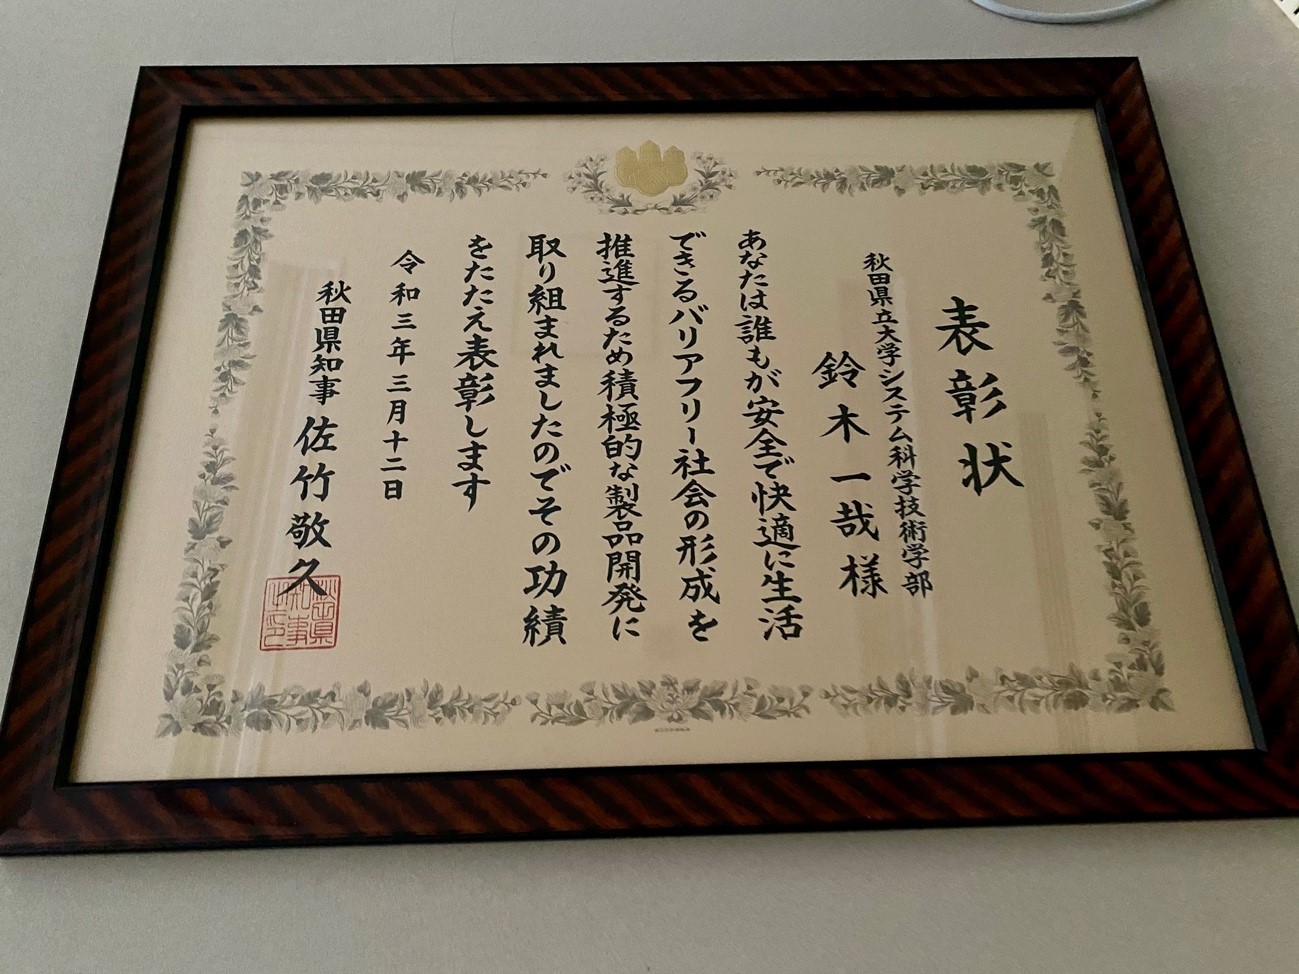 表彰状
秋田県立大学システム科学技術学部
鈴木一哉様
あなたは誰もが安全で快適に生活
できるバリアフリー社会の形成を
推進するため積極的な製品開発に
取り組まれましたのでその功績
をたたえ表彰します
令和三年三月十二日
秋田県知事 佐竹敬久